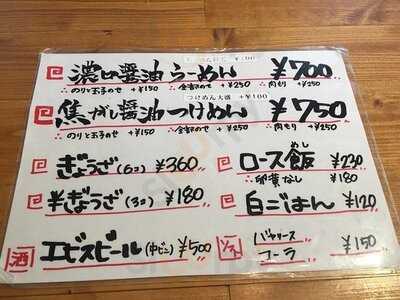 濃い醤油らーめん ¥700
∴のりと玉子のせ +¥150 ∴全部のせ +¥250 ∴肉もり +¥250
つけめん大盛 +¥100
焦がし醤油つけめん ¥750
∴のりと玉子のせ +¥150 ∴全部のせ +¥250 ∴肉もり +¥250
ぎょうざ(6コ) ¥360
半ぎょうざ(3コ) ¥180
酒 エビスビール(中ビン) ¥500
ロース飯 めし ¥230
∴卵黄なし ¥180
白ごはん ¥120
ソフト バヤリース
コーラ ¥150